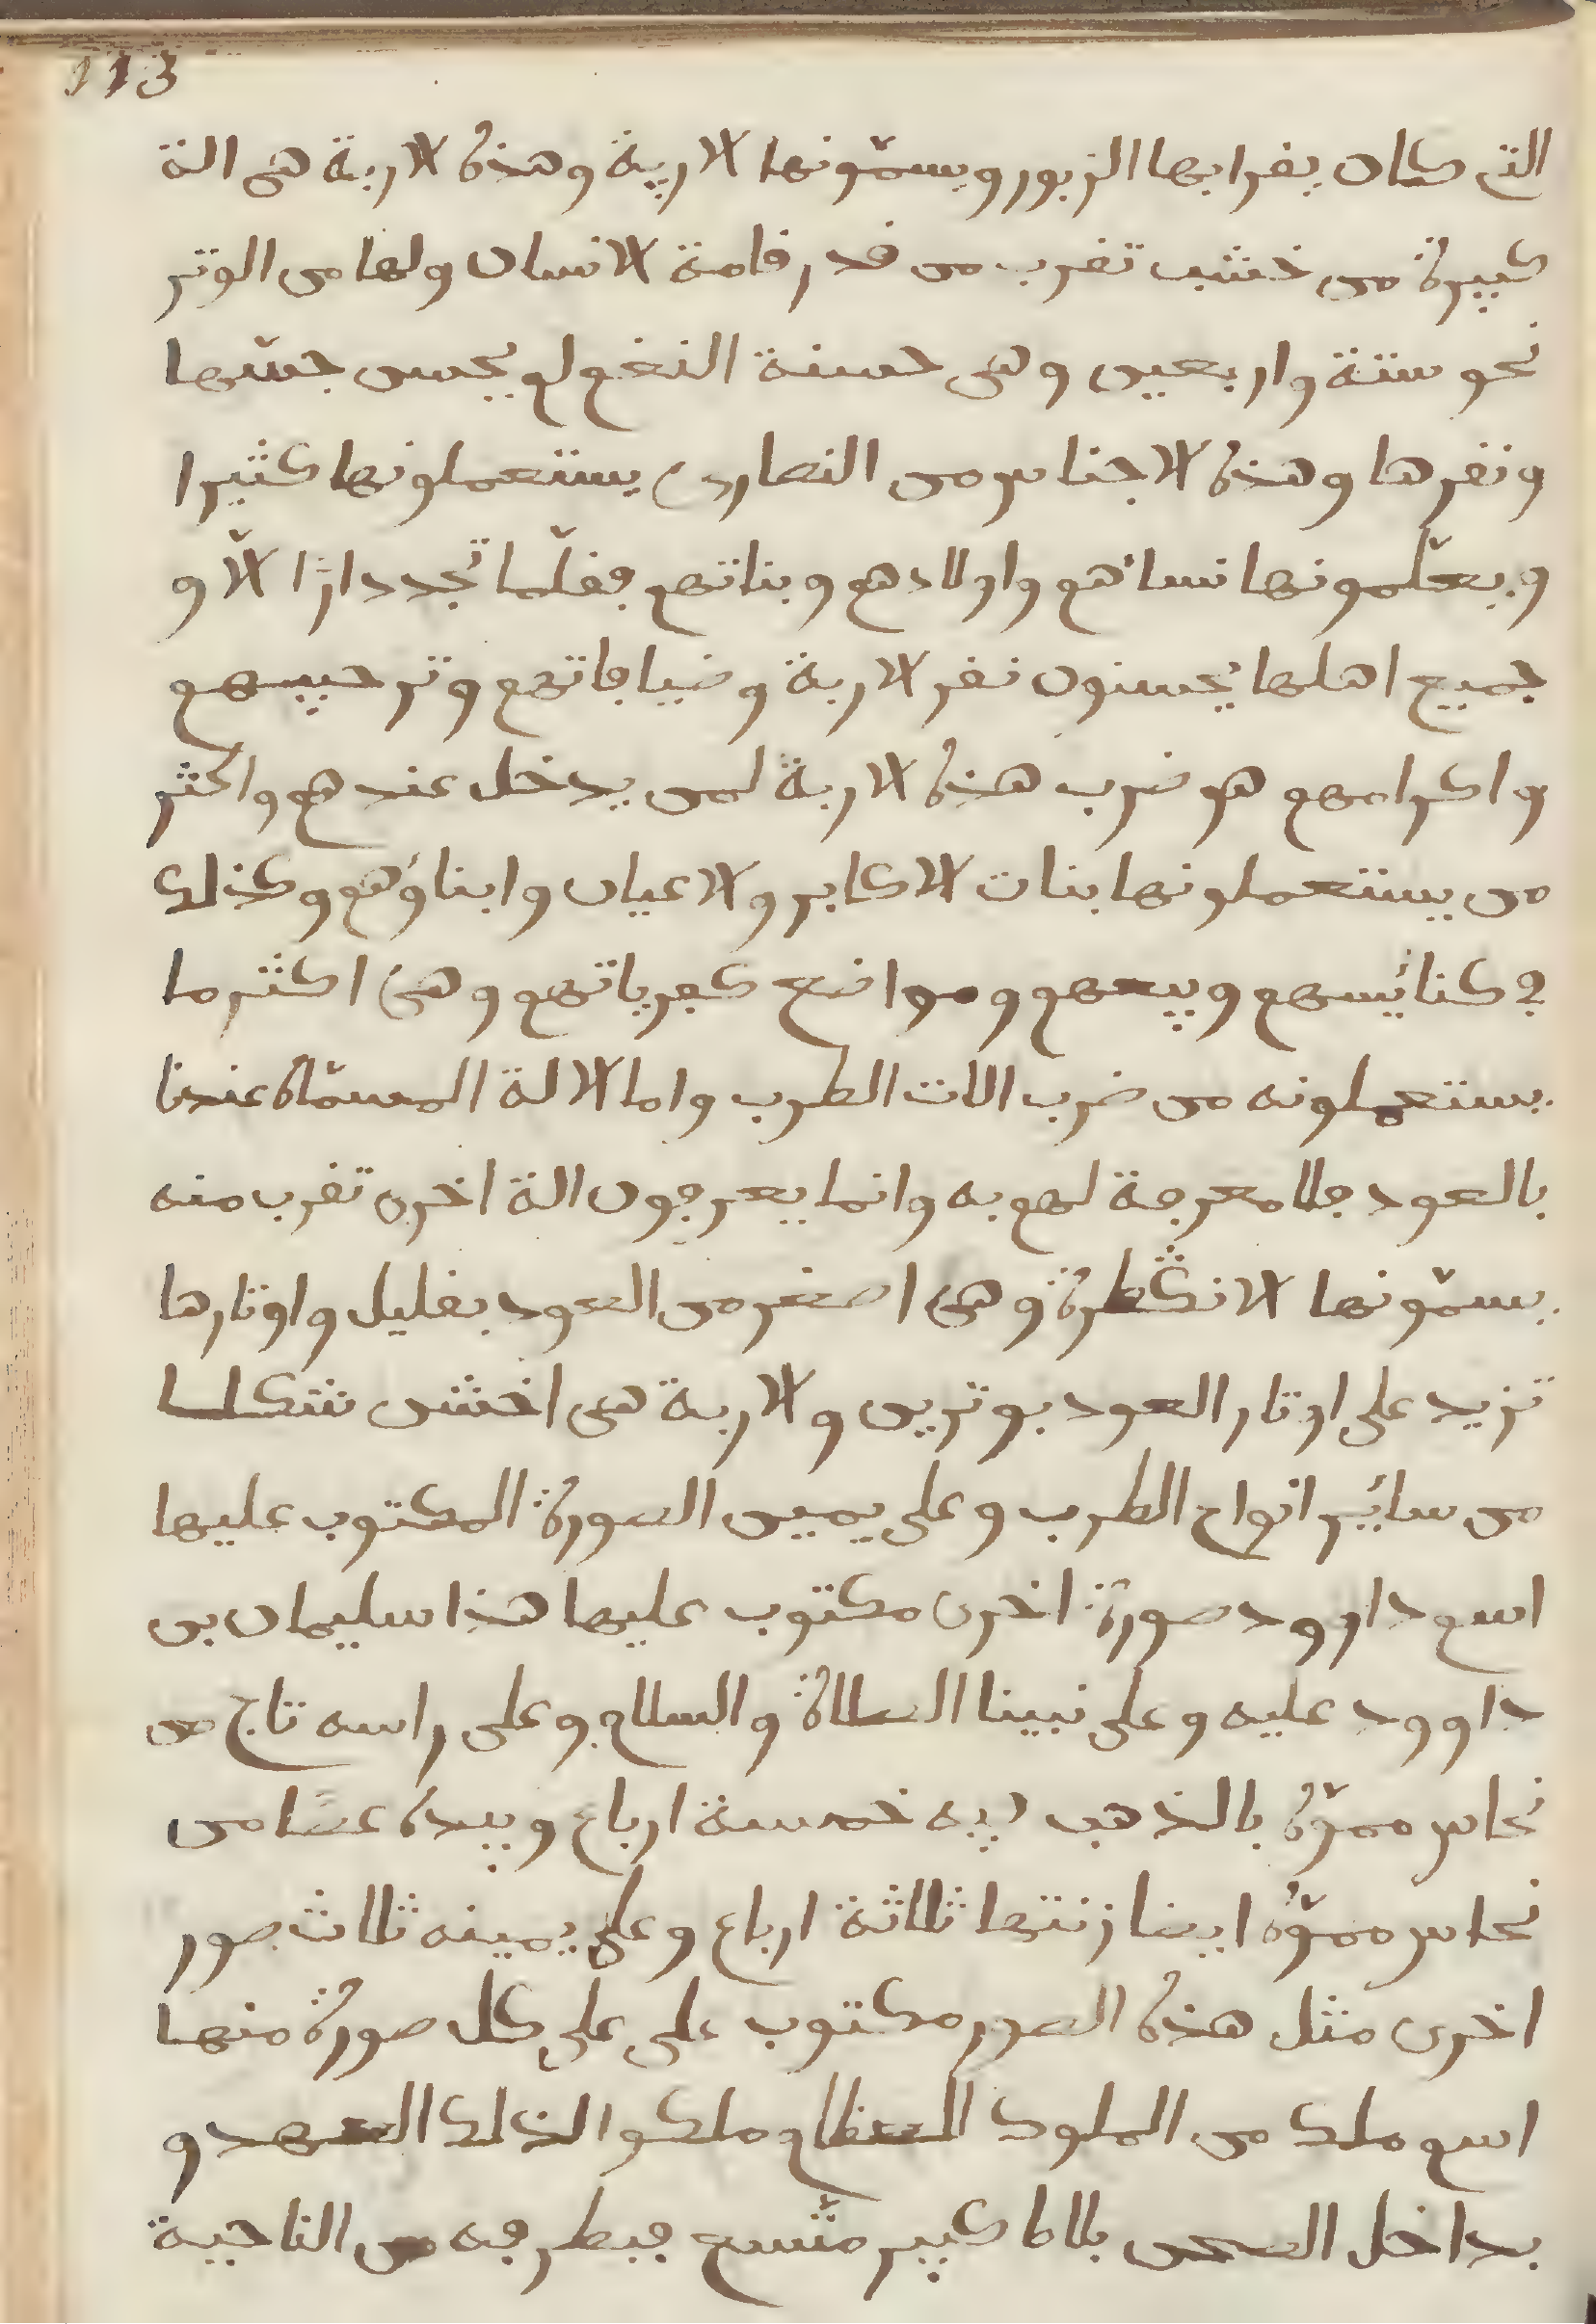 113
التي كان يقرا بها الزبور ويسمّونها الاربة وهذه الاربة هى الة
كبيرة من خشب تقرب من قدر قامة الانسان ولها من الوتر
نحو ستة واربعين وهى حسنة النغم لم يحسن جسّها
ونقرها وهذه الاجناس من النصارى يستعملونها كثيرا
ويعلّمونها نسائهم واولادهم وبناتهم فقلّما تجد دارًا الاّ و
جميع اهلها يحسنون نقر الاربة وضيافاتهم وترحيبهم
واكرامهم هو ضرب هذه الاربة لمن يدخل عندهم واكثر
من يستعملونها بنات الاكابر والاعيان وابناؤهم وكذلك
في كنائيسهم وبيعهم ومواضع كفرياتهم وهى اكثر ما
يستعملونه من ضرب الات الطرب واما الالة المسمّاة عندنا
بالعود فلا معرفة لهم به وانما يعرفون الة اخرى تقرب منه
يسمّونها الانكطرة وهى اصغر من العود بقليل واوتارها
تزيد على اوتار العود بوترين والاربة هى اخشن شكلا
من سائير انواع الطرب وعلى يمين الصورة المكتوب عليها
اسم داوود صورة اخرى مكتوب عليها هذا سليمان بن
داوود عليه وعلى نبينا الصلاة والسلام وعلى راسه تاج من
نحاس مموّه بالذهب فيه خمسة ارباع وبيده عصًا من
نحاس مموّه ايضا زنتها ثلاثة ارباع وعلى يمينه ثلاث صور
اخرى مثل هذه الصور مكتوب على على كل صورة منها
اسم ملك من الملوك العظام ملكو الذلك العهد و
بداخل الصحن بلاط كبير متّسع فبطرفه من الناحية